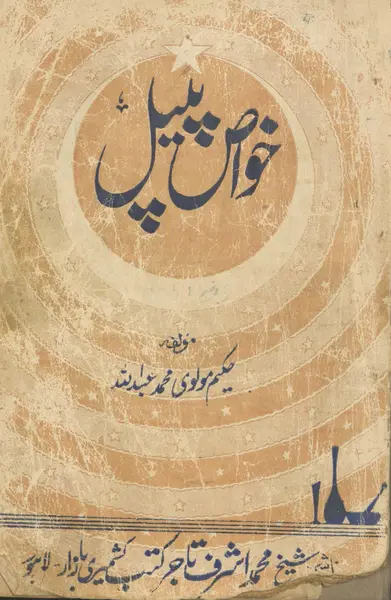 خواص پیپل
مؤلفہ
حکیم مولوی محمد عبداللہ
ناشر شیخ محمد اشرف تاجر کتب کشمیری بازار - لاہور